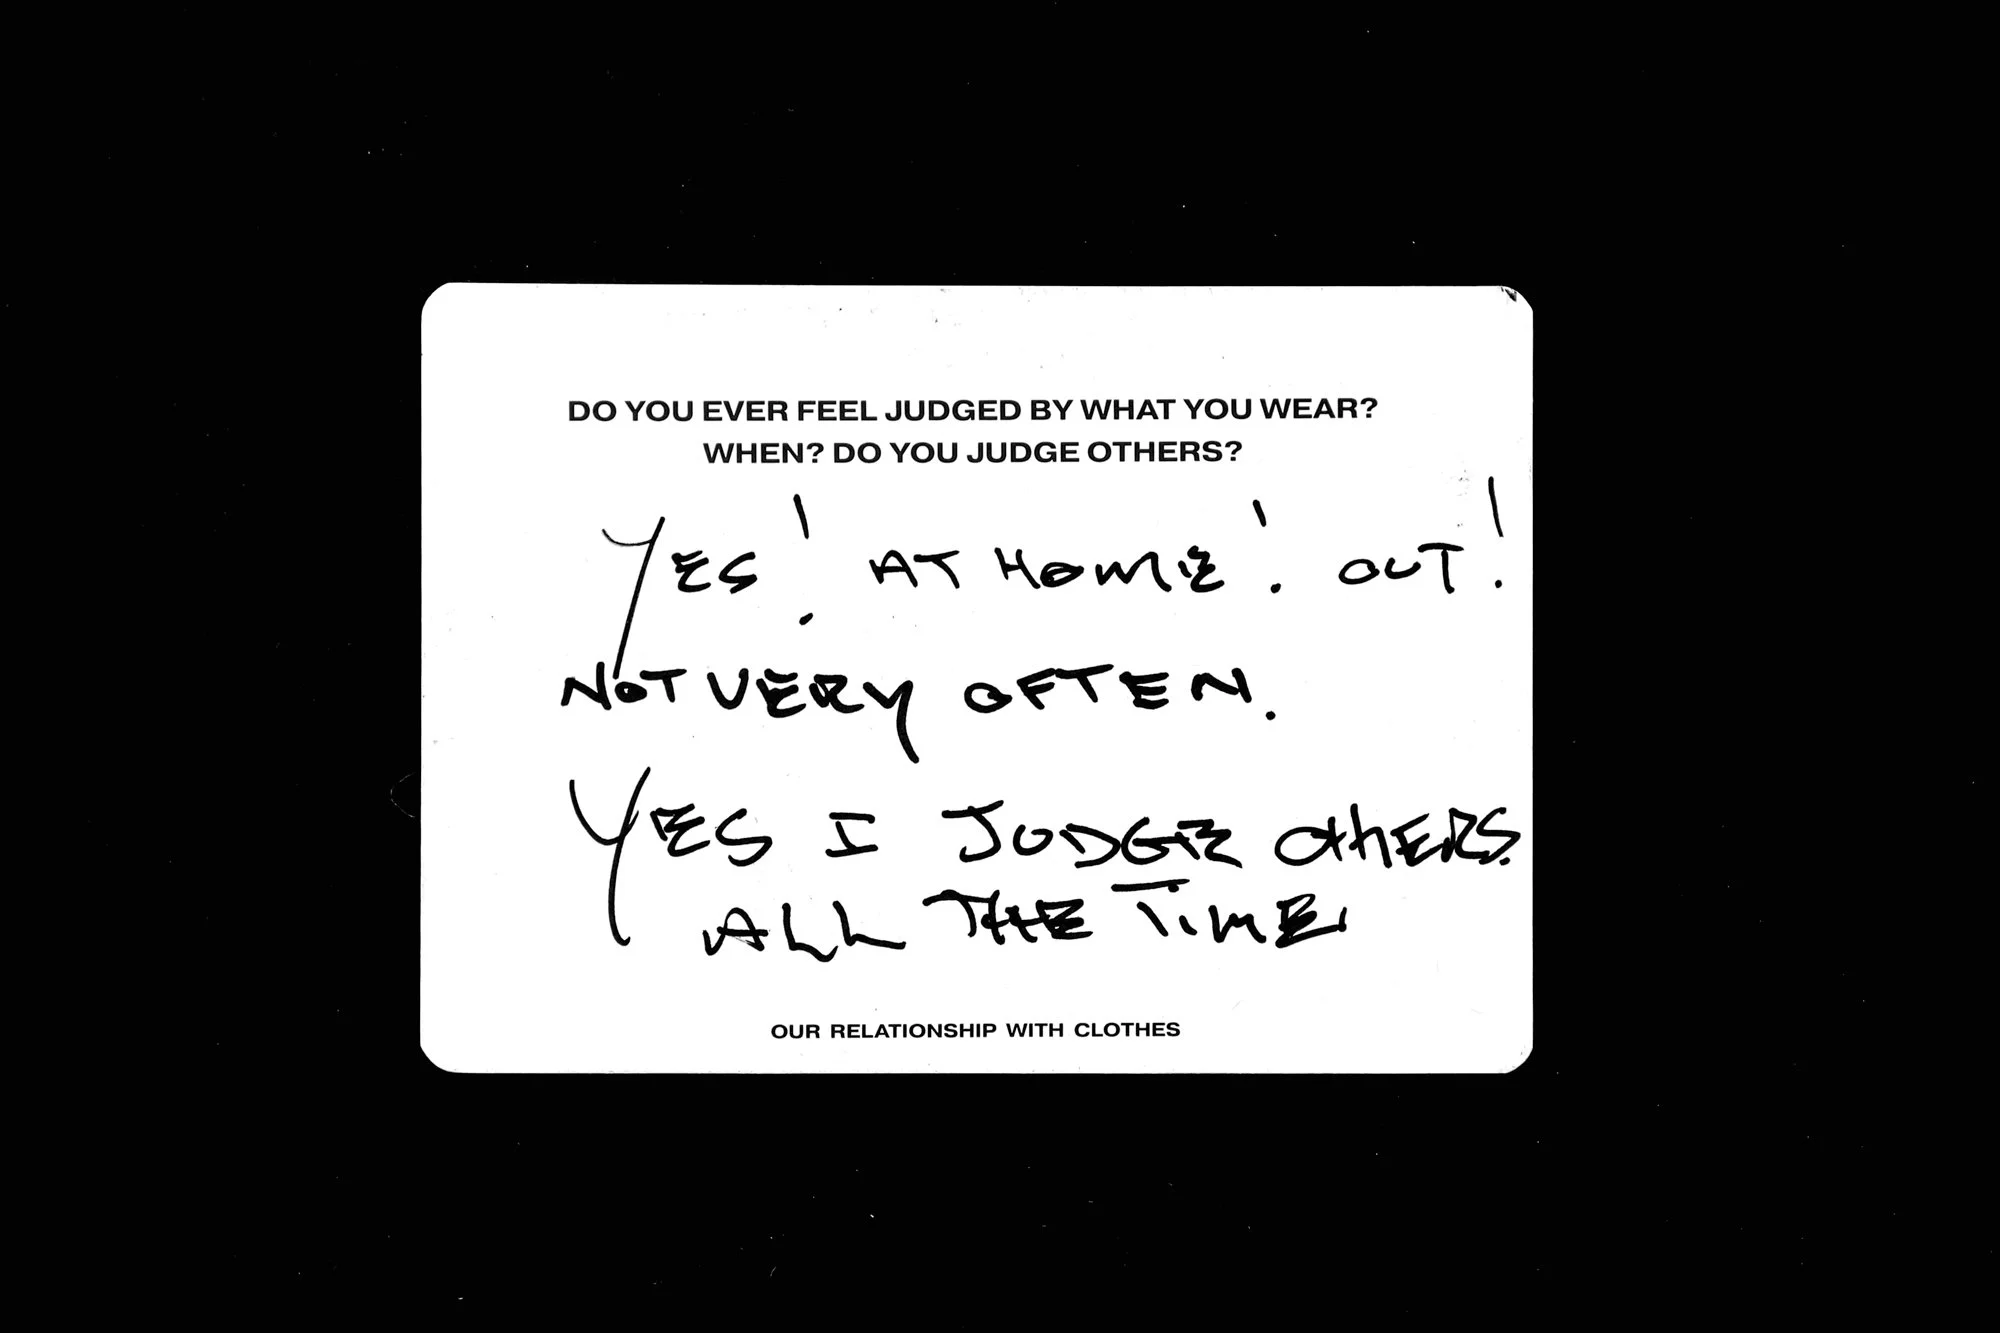 DO YOU EVER FEEL JUDGED BY WHAT YOU WEAR?
WHEN? DO YOU JUDGE OTHERS?
YES! AT HOME! OUT!
NOT VERY OFTEN.
YES I JUDGE OTHERS.
ALL THE TIME.
OUR RELATIONSHIP WITH CLOTHES